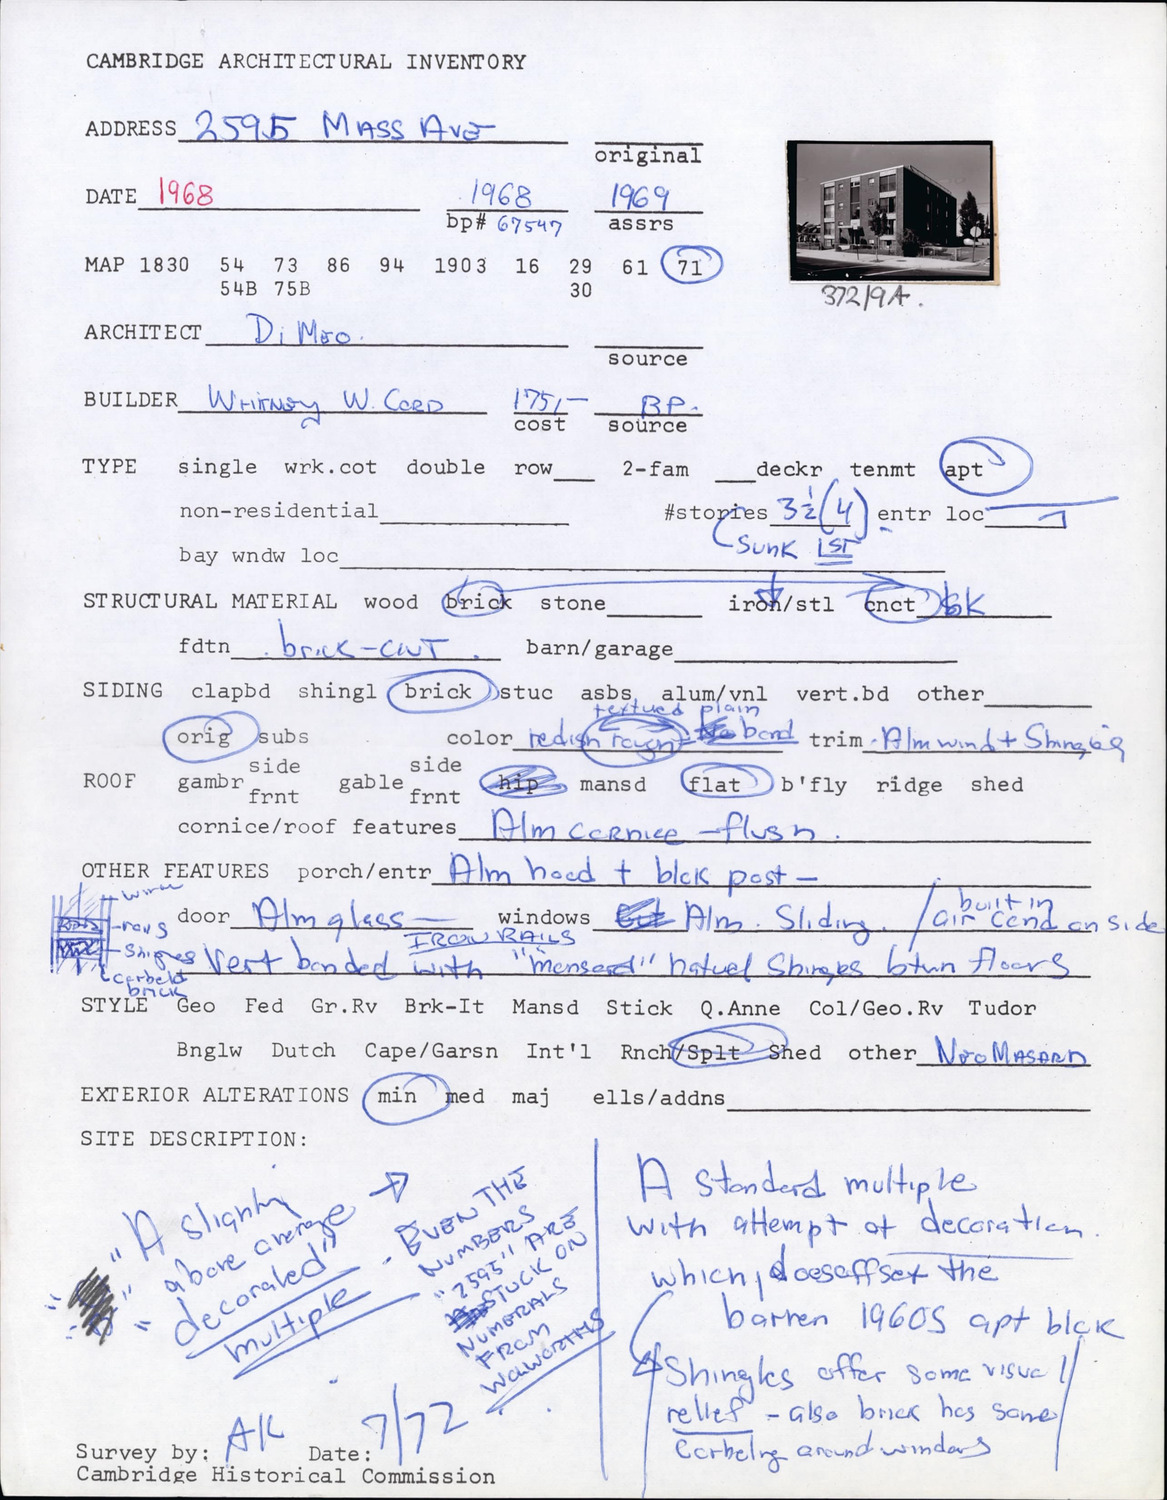 CAMBRIDGE ARCHITECTURAL INVENTORY
ADDRESS 2595 MASS AVE
original
DATE 1968 1968 1969
bp# 67547 assrs
MAP 1830 54 73 86 94 1903 16 29 61 71
54B 75B 30
372/9A.
ARCHITECT DiMeo.
source
BUILDER WHITNEY W. CORD 175,- BP.
cost source
TYPE single wrk.cot double row 2-fam deckr tenmt apt
non-residential #stories 3½(4) entr loc
SUNK 1ST
bay wndw loc
STRUCTURAL MATERIAL wood brick stone iron/stl cnct bk
fdtn brick-cnct. barn/garage
SIDING clapbd shingl brick stuc asbs alum/vnl vert.bd other
textured plain
orig subs color redish rough bond trim Alm wind + Shingles
side side
ROOF gambr gable hip mansd flat b'fly ridge shed
frnt frnt
cornice/roof features Alm cornice - flush.
OTHER FEATURES porch/entr Alm hood + blck post -
built in
door Alm glass windows Alm. Sliding. / air cond on side
IRON RAILS
rails
Shingles
corbeld
brick
Vert banded with "mansard" natuel Shingles btwn floors
STYLE Geo Fed Gr.Rv Brk-It Mansd Stick Q.Anne Col/Geo.Rv Tudor
Bnglw Dutch Cape/Garsn Int'l Rnch/Splt Shed other NEOMASARD
EXTERIOR ALTERATIONS min med maj ells/addns
SITE DESCRIPTION:
"A slightly
above average
decorated"
multiple
- EVEN THE
NUMBERS
"2595" ARE
STUCK ON
NUMERALS
FROM
WOLWORTHS
A standard multiple
with attempt at decoration.
which, does affset the
barren 1960s apt blck
Shingles offer some visual
relief - also brick has some
Corbelng around windows
Survey by: AK Date: 7/72
Cambridge Historical Commission